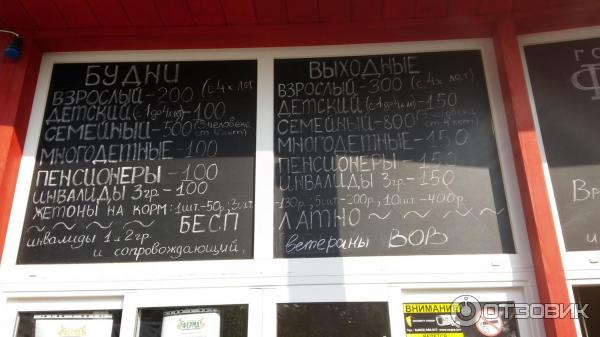 БУДНИ
ВЗРОСЛЫЙ-200 (с 4х лет)
ДЕТСКИЙ (с 1 до 4 лет)-100
СЕМЕЙНЫЙ-500 (3 человека от 4 лет)
МНОГОДЕТНЫЕ-100
ПЕНСИОНЕРЫ-100
ИНВАЛИДЫ 3гр.-100
ЖЕТОНЫ НА КОРМ: 1шт-50р, 3шт.
БЕСП
инвалиды 1 и 2 гр.
и сопровождающий,
ВЫХОДНЫЕ
ВЗРОСЛЫЙ-300 (с 4х лет)
ДЕТСКИЙ (с 1 до 4 лет)-150
СЕМЕЙНЫЙ-800 (3 человека от 4 лет)
МНОГОДЕТНЫЕ-150
ПЕНСИОНЕРЫ-150
ИНВАЛИДЫ 3гр-150
-130р, 5шт-200р, 10шт-400р.
ЛАТНО
ветераны ВОВ
ФЕРМА
ФЕРМА
ВНИМАНИЕ
ВЕДЕТСЯ
ОТЗОВИК